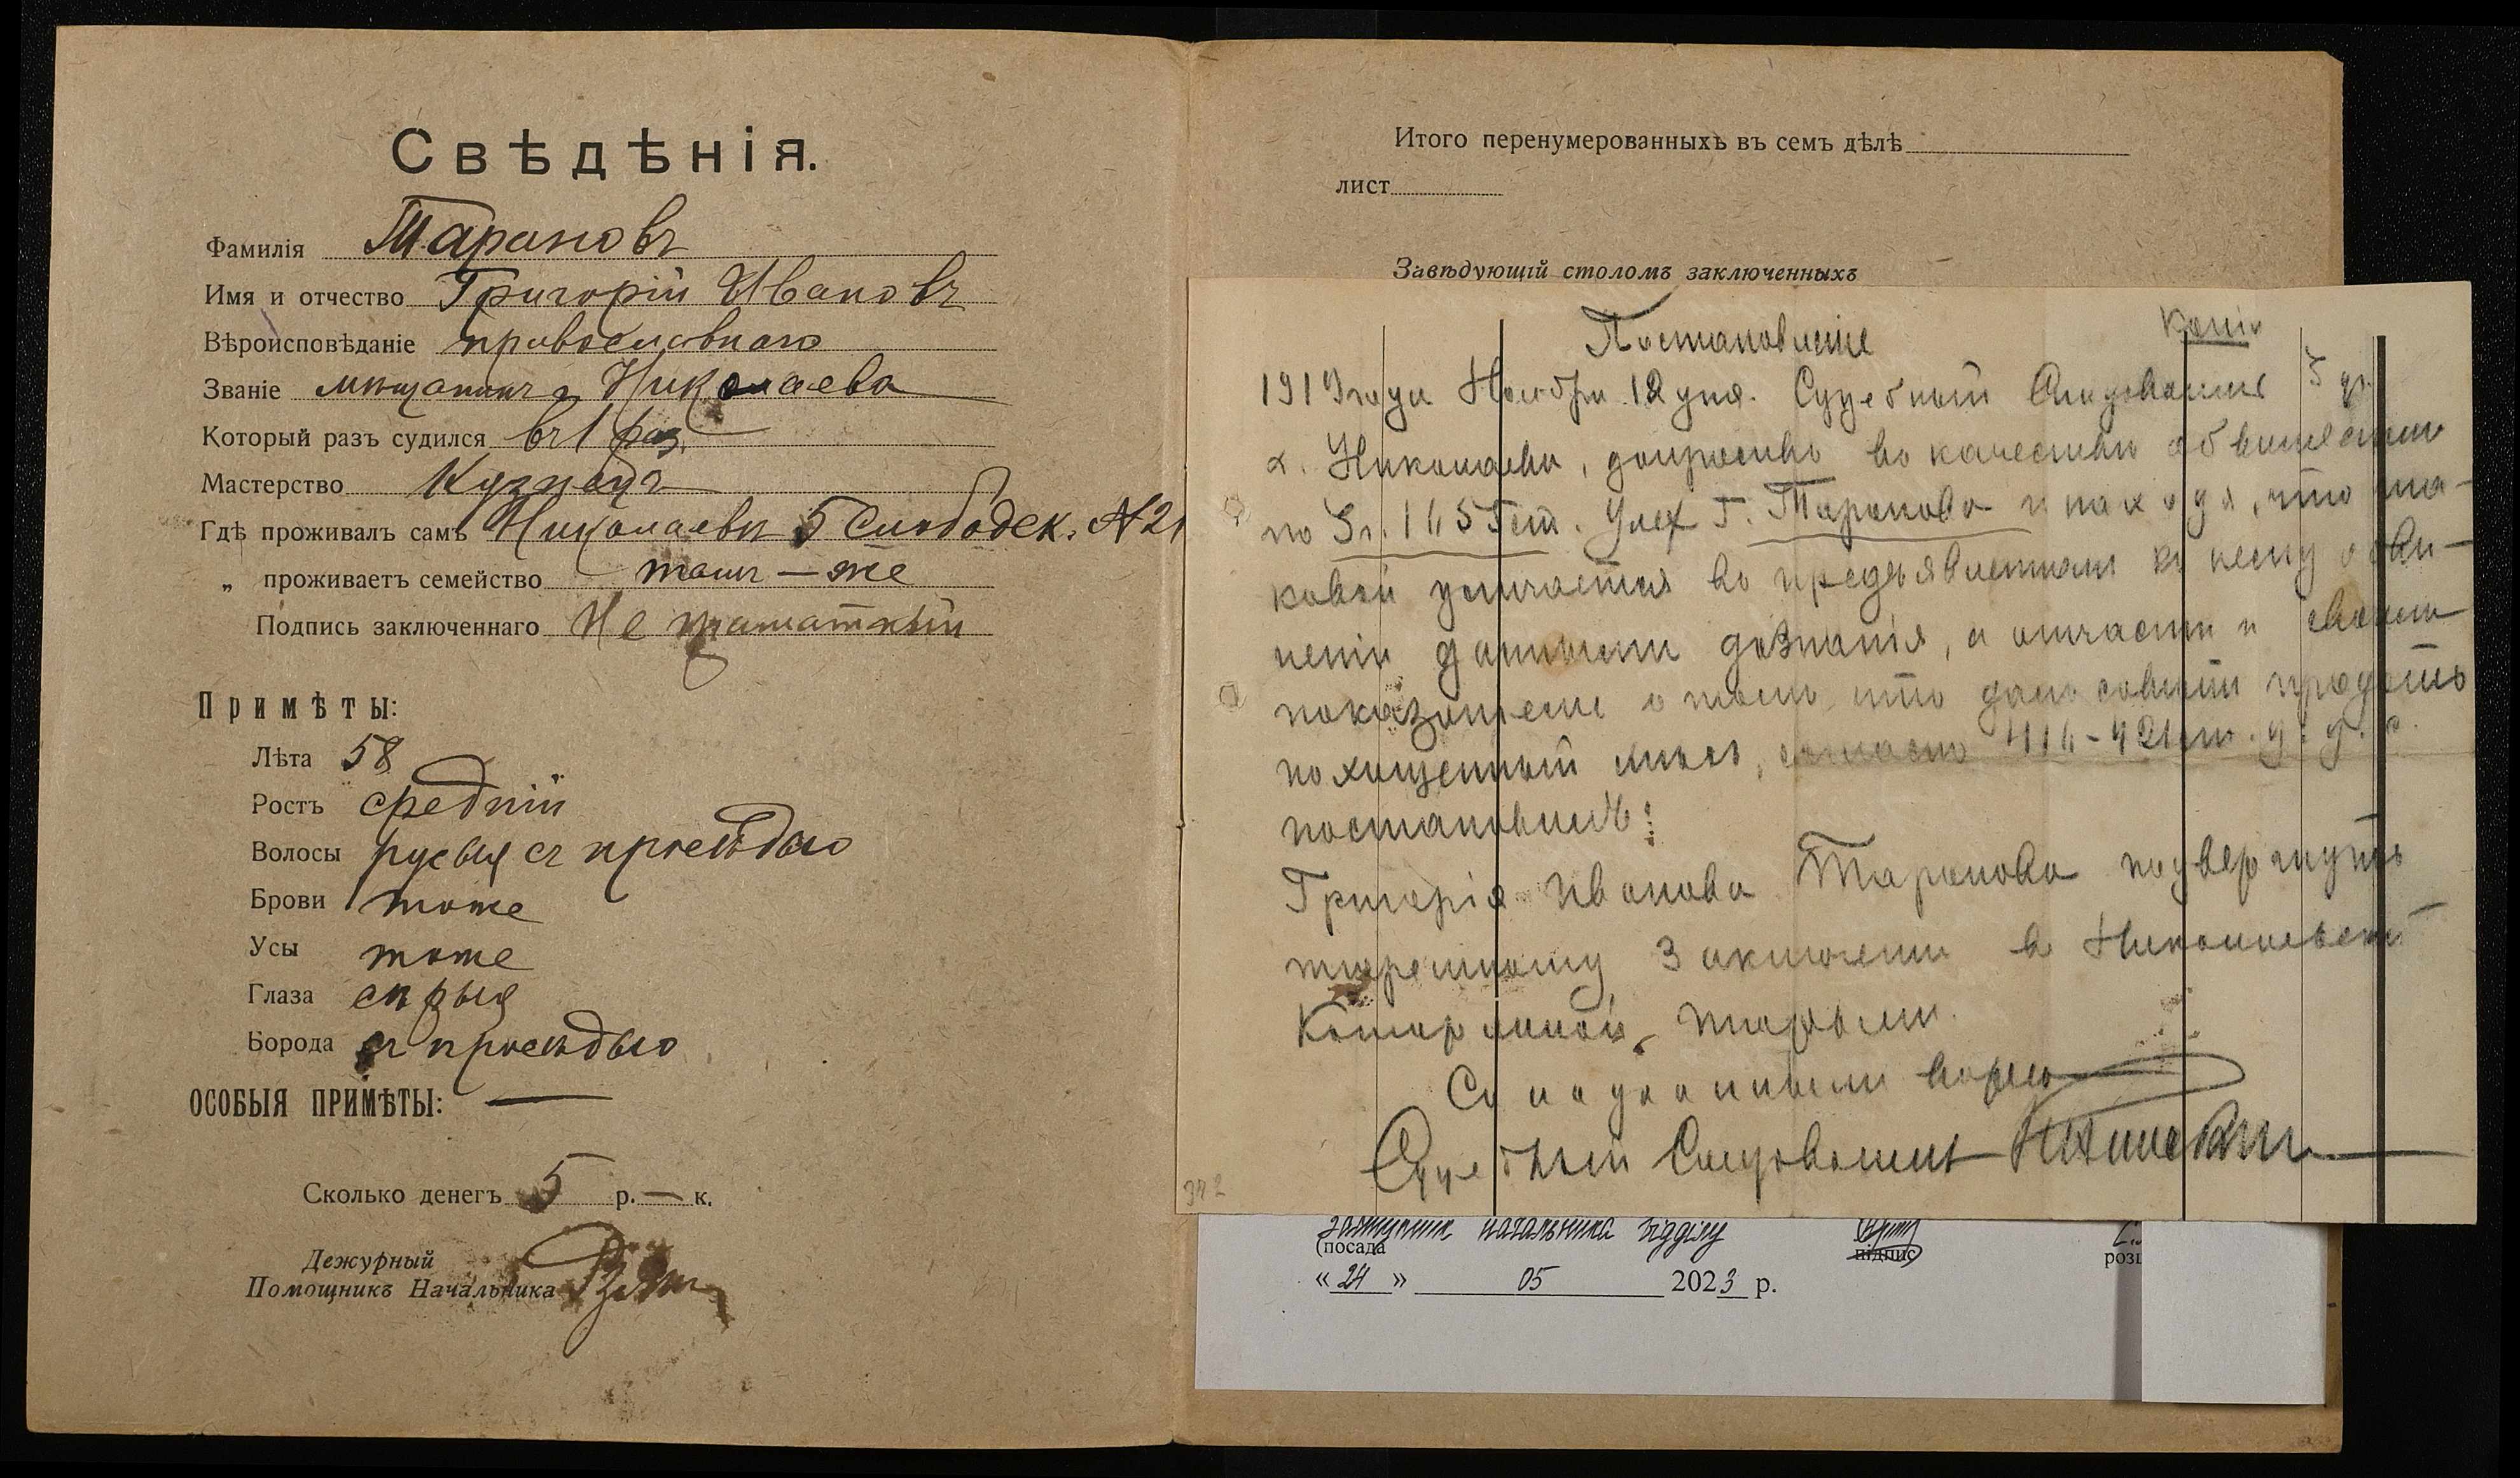 Свѣдѣнія.
Фамилія Тарановъ
Имя и отчество Григорій Ивановъ
Вѣроисповѣданіе православнаго
Званіе мѣщанинъ г. Николаева
Который разъ судился въ 1 раз.
Мастерство Кузнецъ
Гдѣ проживалъ самъ Николаевъ 5 Слободск. № 21
„ проживаетъ семейство тамъ — же
Подпись заключеннаго Не грамотный
Примѣты:
Лѣта 58
Ростъ средній
Волосы русыя съ просѣдью
Брови тоже
Усы тоже
Глаза сѣрыя
Борода съ просѣдью
ОСОБЫЯ ПРИМѢТЫ: —
Сколько денегъ 5 р. — к.
Дежурный
Помощникъ Начальника
Итого перенумерованныхъ въ семъ дѣлѣ
лист
Завѣдующій столомъ заключенныхъ
Копія
Постановленіе
1919 года Ноября 12 дня. Судебный Слѣдователь 5 уч.
г. Николаева, допросивъ въ качествѣ обвиняемаго
по 3 ч. 1655 ст. Улож Г. Таранова и находя, что та-
ковой уличается въ предъявленномъ къ нему обви-
неніи данными дознанія, а отчасти и своимъ
показаніемъ о томъ что далъ совѣтъ продать
похищенный, согласно 416-421 ст. у. у. с.
постановилъ:
Григорія Иванова Таранова подвергнуть
тюремному Заключенію въ Николаевской
Каторжной тюрьмѣ.
Съ подлиннымъ вѣрно
Судебный Слѣдователь
372
заступник начальника відділу
(посада підпис розш
« 24 » 05 2023 р.